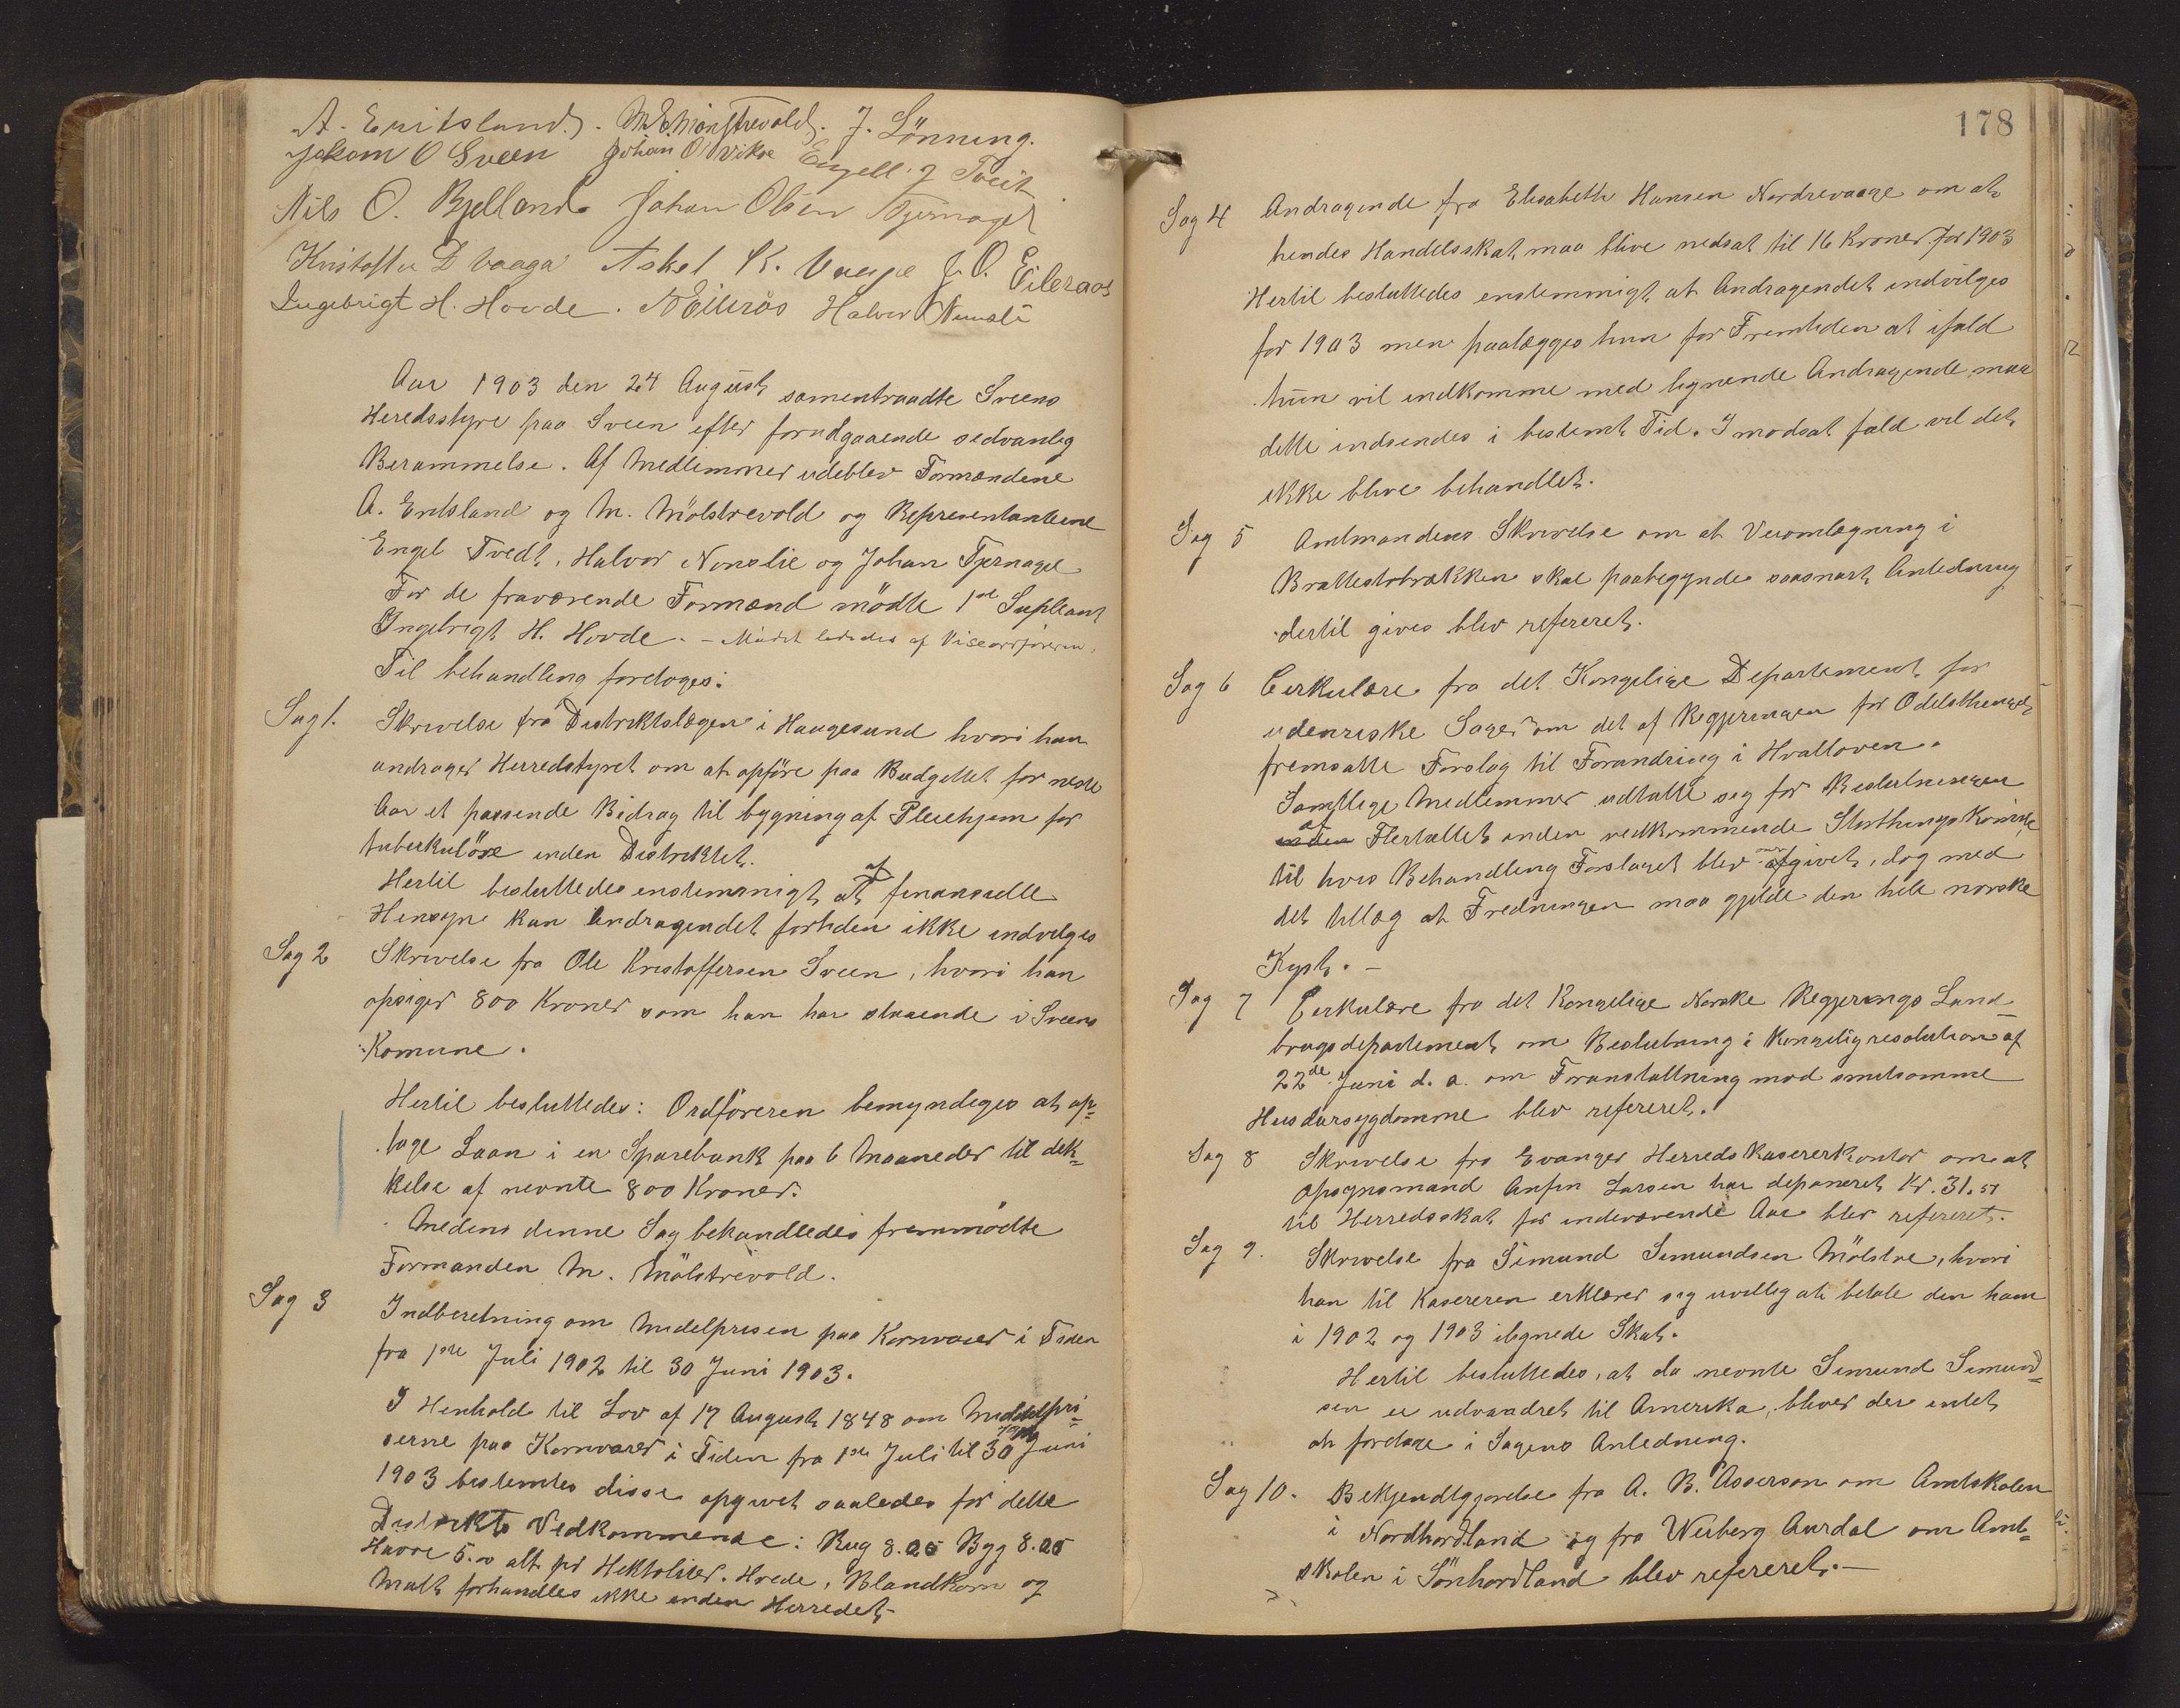 A. Eritsland. M. E. Mølstrevold. J. Lönning.
Jakom O Sveen Johan O Vikse Engell J Tveit
Nils O. Bjelland Johan Olsen Tjernagel
Kristoffer D Vaaga Askel K. J. O. Eileraas
Ingebrigt H. Hovde. N Eileraas Halvor Nonslie
Aar 1903 den 24 August samentraadte Sveens
Heredsstyre paa Sveen efter forudgaaende sedvanlig
Berammelse. Af Medlemmer udeblev Formændene
A. Eritsland og M. Mölstrevold og Representanterne
Engel Tvedt, Halvor Nonslie og Johan Tjernagel
For de fraværende Formænd mödte 1ste Supleant
Ingebrigt H. Hovde. – Mödet lededes af Viseordföreren.
Til behandling foretoges:
Sag 1. Skrivelse fra Distriktslægen i Haugesund hvori han
andrager Herredstyret om at opföre paa Budgettet for neste
Aar et passende Bidrag til bygning af Pleiehjem for
tuberkulöse inden Distriktet.
Hertil besluttedes enstemmigt at af finansielle
Hensyn kan Andragendet fortiden ikke indvilges
Sag 2 Skrivelse fra Ole Kristoffersen Sveen, hvori han
opsiger 800 Kroner som han har staaende i Sveens
Komune.
Hertil besluttedes: Ordföreren bemyndiges at op=
tage Laan i en Sparebank paa 6 Maaneder til dek=
kelse af nevnte 800 Kroner.
Medens denne Sag behandledes fremmödte
Formanden M. Mölstrevold.
Sag 3 Indberetning om Midelprisen paa Kornvarer i Tiden
fra 1ste Juli 1902 til 30 Juni 1903.
I Henhold til Lov af 17 August 1848 om Middelpri=
serne paa Kornvarer i Tiden fra 1ste Juli til 30 Juni
1903 bestemtes disse opgivet saaledes for dette
Distrikts Vedkommende: Rug 8.25 Byg 8.25
Havre 5.00 alt pr Hektoliter. Hvede, Blandkorn og
Malt forhandles ikke inden Herredet.
178
Sag 4 Andragende fra Elisabeth Hansen Nordrevaage om at
hendes Handelsskat maa blive nedsat til 16 Kroner for 1903
Hertil besluttedes enstemmigt at Andragendet indvilges
for 1903 men paalægges hun for Fremtiden at ifald
hun vil indkomme med lignende Andragende maa
dette indsendes i bestemt Tid. I modsat fald vil det
ikke blive behandlet.
Sag 5 Amtmandens Skrivelse om at Veiomlægning i
Brattestobrækken skal paabegyndes saasnart Anledning
dertil gives blev refereret.
Sag 6 Cerkulære fra det Kongelige Departement for
udenriske Sager om det af Regjeringen for Odelsthinget
fremsatte Forslag til Forandring i Hvalloven.
Samtlige Medlemmer udtalte seg for Beslutningen
inden af Flertallet inden vedkommende Storthingskomite
til hvis Behandling Forslaget blev overgivet, dog med
det tillæg at Fredningen maa gjelde den hele norske
Kyst. –
Sag 7 Cerkulære fra det Kongelige Norske Regjerings Land
brugsdepartement om Beslutning i Kongeligresolution af
22de Juni d. a. om Foranstaltning mod smitsomme
Husdursygdomme blev refereret.
Sag 8 Skrivelse fra Evanger Herreds Kasererkontor om at
Opsynsmand Anfin Larsen har deponeret Kr. 31.51
til Herredsskat for indeværende Aar blev refereret.
Sag 9. Skrivelse fra Simund Simundsen Mölstre, hvori
han til Kasereren erklærer sig uvillig at betale den ham
i 1902 og 1903 ilignede Skat.
Hertil besluttedes, at da nevnte Simund Simund=
sen er udvandret til Amerika, bliver der intet
at foretage i Sagens Anledning.
Sag 10. Bekjendtgjørelse fra A. B. Asserson om Amtskolen
i Nordhordland og fra Wiberg Aurdal om Amt=
skolen i Sönhordland blev refereret. –